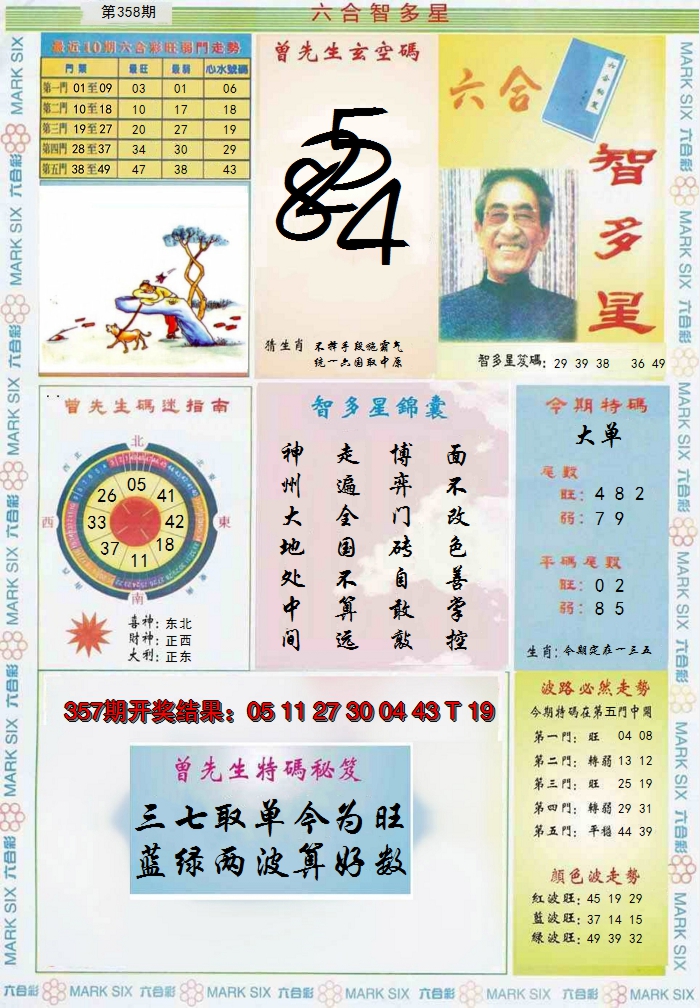 第358期
六合智多星
最近10期六合彩旺弱門走勢
門類 最旺 最弱 心水號碼
第一門 01至09 03 01 06
第二門 10至18 10 17 18
第三門 19至27 20 27 19
第四門 28至37 34 30 29
第五門 38至49 47 38 43
曾先生玄空碼
5
8 4
猜生肖 不择手段施霸气
统一六国取中原
六合
六合秘笈
智多星
智多星笈碼: 29 39 38 36 49
曾先生碼迷指南
北
西北
東北
西
東
南
05
41
42
18
11
37
33
26
喜神: 东北
財神: 正西
大利: 正东
智多星錦囊
神州大地处中间
走遍全国不算远
博弈门砖自敢敲
面不改色善掌控
今期特碼
大单
尾數
旺: 4 8 2
弱: 7 9
平碼尾數
旺: 0 2
弱: 8 5
生肖: 今期定在一三五
357期开奖结果: 05 11 27 30 04 43 T 19
曾先生特碼秘笈
三七取单今为旺
蓝绿两波算好数
波路必然走勢
今期特碼在第五門中開
第一門: 旺 04 08
第二門: 轉弱 13 12
第三門: 旺 25 19
第四門: 轉弱 29 31
第五門: 平穩 44 39
顏色波走勢
紅波旺: 45 19 29
藍波旺: 37 14 15
綠波旺: 49 39 32
六合彩 MARK SIX 六合彩 MARK SIX 六合彩 MARK SIX 六合彩 MARK SIX 六合彩